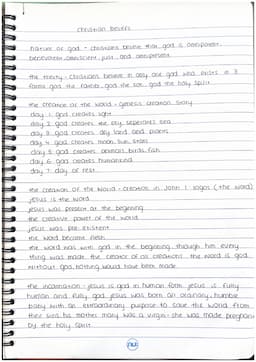 christian beliefs
nature of god - christians believe that god is omnipotent,
benevolent, omniscient, just, and omnipresent.
the trinity - christians believe in only one god who exists in 3
forms god the father, god the son, god the holy spirit
the creation of the world - genesis creation story
day 1 god creates light
day 2 god creates the sky, seperates sea
day 3 god creates dry land and plants
day 4 god creates moon, sun, stars
day 5 god creates animals, birds, fish
day 6 god creates humankind
day 7 day of rest
the creation of the world - creation in john 1 logos (the word)
jesus is the word
jesus was present at the beginning
the creative power of the world
jesus was pre-existent
the word became flesh
the word was with god in the beginning, through him every
thing was made the creator of all creations the word is god
without god nothing would have been made
the incarnation - jesus is god in human form jesus is fully
human and fully god jesus was born an ordinary, humble
baby with an extraordinary purpose to save the world from
their sins his mother mary was a virgin - she was made pregnant
by the holy spirit
nu